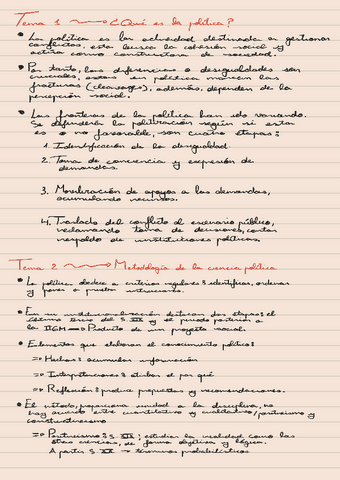 Tema 1 ⟿ ¿Qué es la política?
• La política es la actividad destinada a gestionar
conflictos, esta busca la cohesión social y
actúa como constructora de sociedad.
• Por tanto, las diferencias o desigualdades son
cruciales, estas en política marcan las
fracturas (cleavages), además, dependen de la
percepción social.
• Las fronteras de la política han ido variando.
Se defenderá la politización según si estas
es o no favorable, son cuatro etapas:
1. Identificación de la desigualdad
2. Toma de conciencia y expresión de
demandas.
3. Movilización de apoyos a las demandas,
acumulando recursos.
4. Traslado del conflicto al escenario público,
reclamando toma de decisiones, contar
respaldo de instituciones políticas.
Tema 2 ⟿ Metodología de la ciencia política
• La política obedece a criterios regulares: identificar, ordenar
y poner a prueba intuiciones.
• En su institucionalización destacan dos etapas: el
último tercio del S. XIX y el periodo posterior a
la IIGM ⇒ Producto de un proyecto social.
• Elementos que elaboran el conocimiento político:
⇒ Hechos: acumular información
⇒ Interpretaciones: atribuir el por qué
⇒ Reflexión: produce propuestas y recomendaciones.
• El método, proporciona unidad a la disciplina, no
hay acuerdo entre cuantitativo y cualitativo/positivismo y
constructivismo
⇒ Positivismo: S. XIX; estudiar la realidad como las
otras ciencias, de forma objetiva y lógica.
A partir S. XX → términos probabilísticos